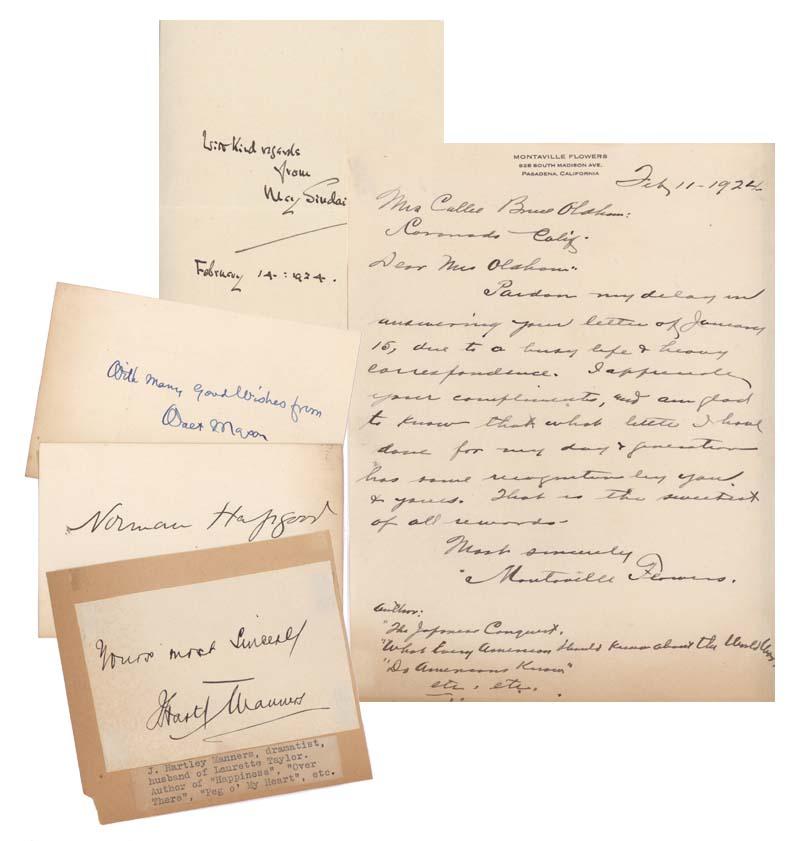 With kind regards
from
May Sinclai
February 14 : 1924.
MONTAVILLE FLOWERS
928 SOUTH MADISON AVE.
PASADENA, CALIFORNIA
Feb 11 - 1924
Mrs Callie Bruce Oldham:
Coronado - Calif.
Dear Mrs Oldham:
Pardon my delay in
answering your letter of January
15, due to a busy life & heavy
correspondence. I appreciate
your compliments, and am glad
to know that what little I have
done for my day & generation
has some recognition by you
& yours. That is the sweetest
of all rewards -
Most sincerely
Montaville Flowers.
Author:
"The Japanese Conquest,
"What Every American Should Know about the World
"Do Americans Know"
etc, etc.
With Many Good Wishes from
Walt Mason
Norman Hapgood
Yours most Sincerely
J Hartley Manners
J. Hartley Manners, dramatist,
husband of Laurette Taylor.
Author of "Happiness", "Over
There", "Peg o' My Heart", etc.